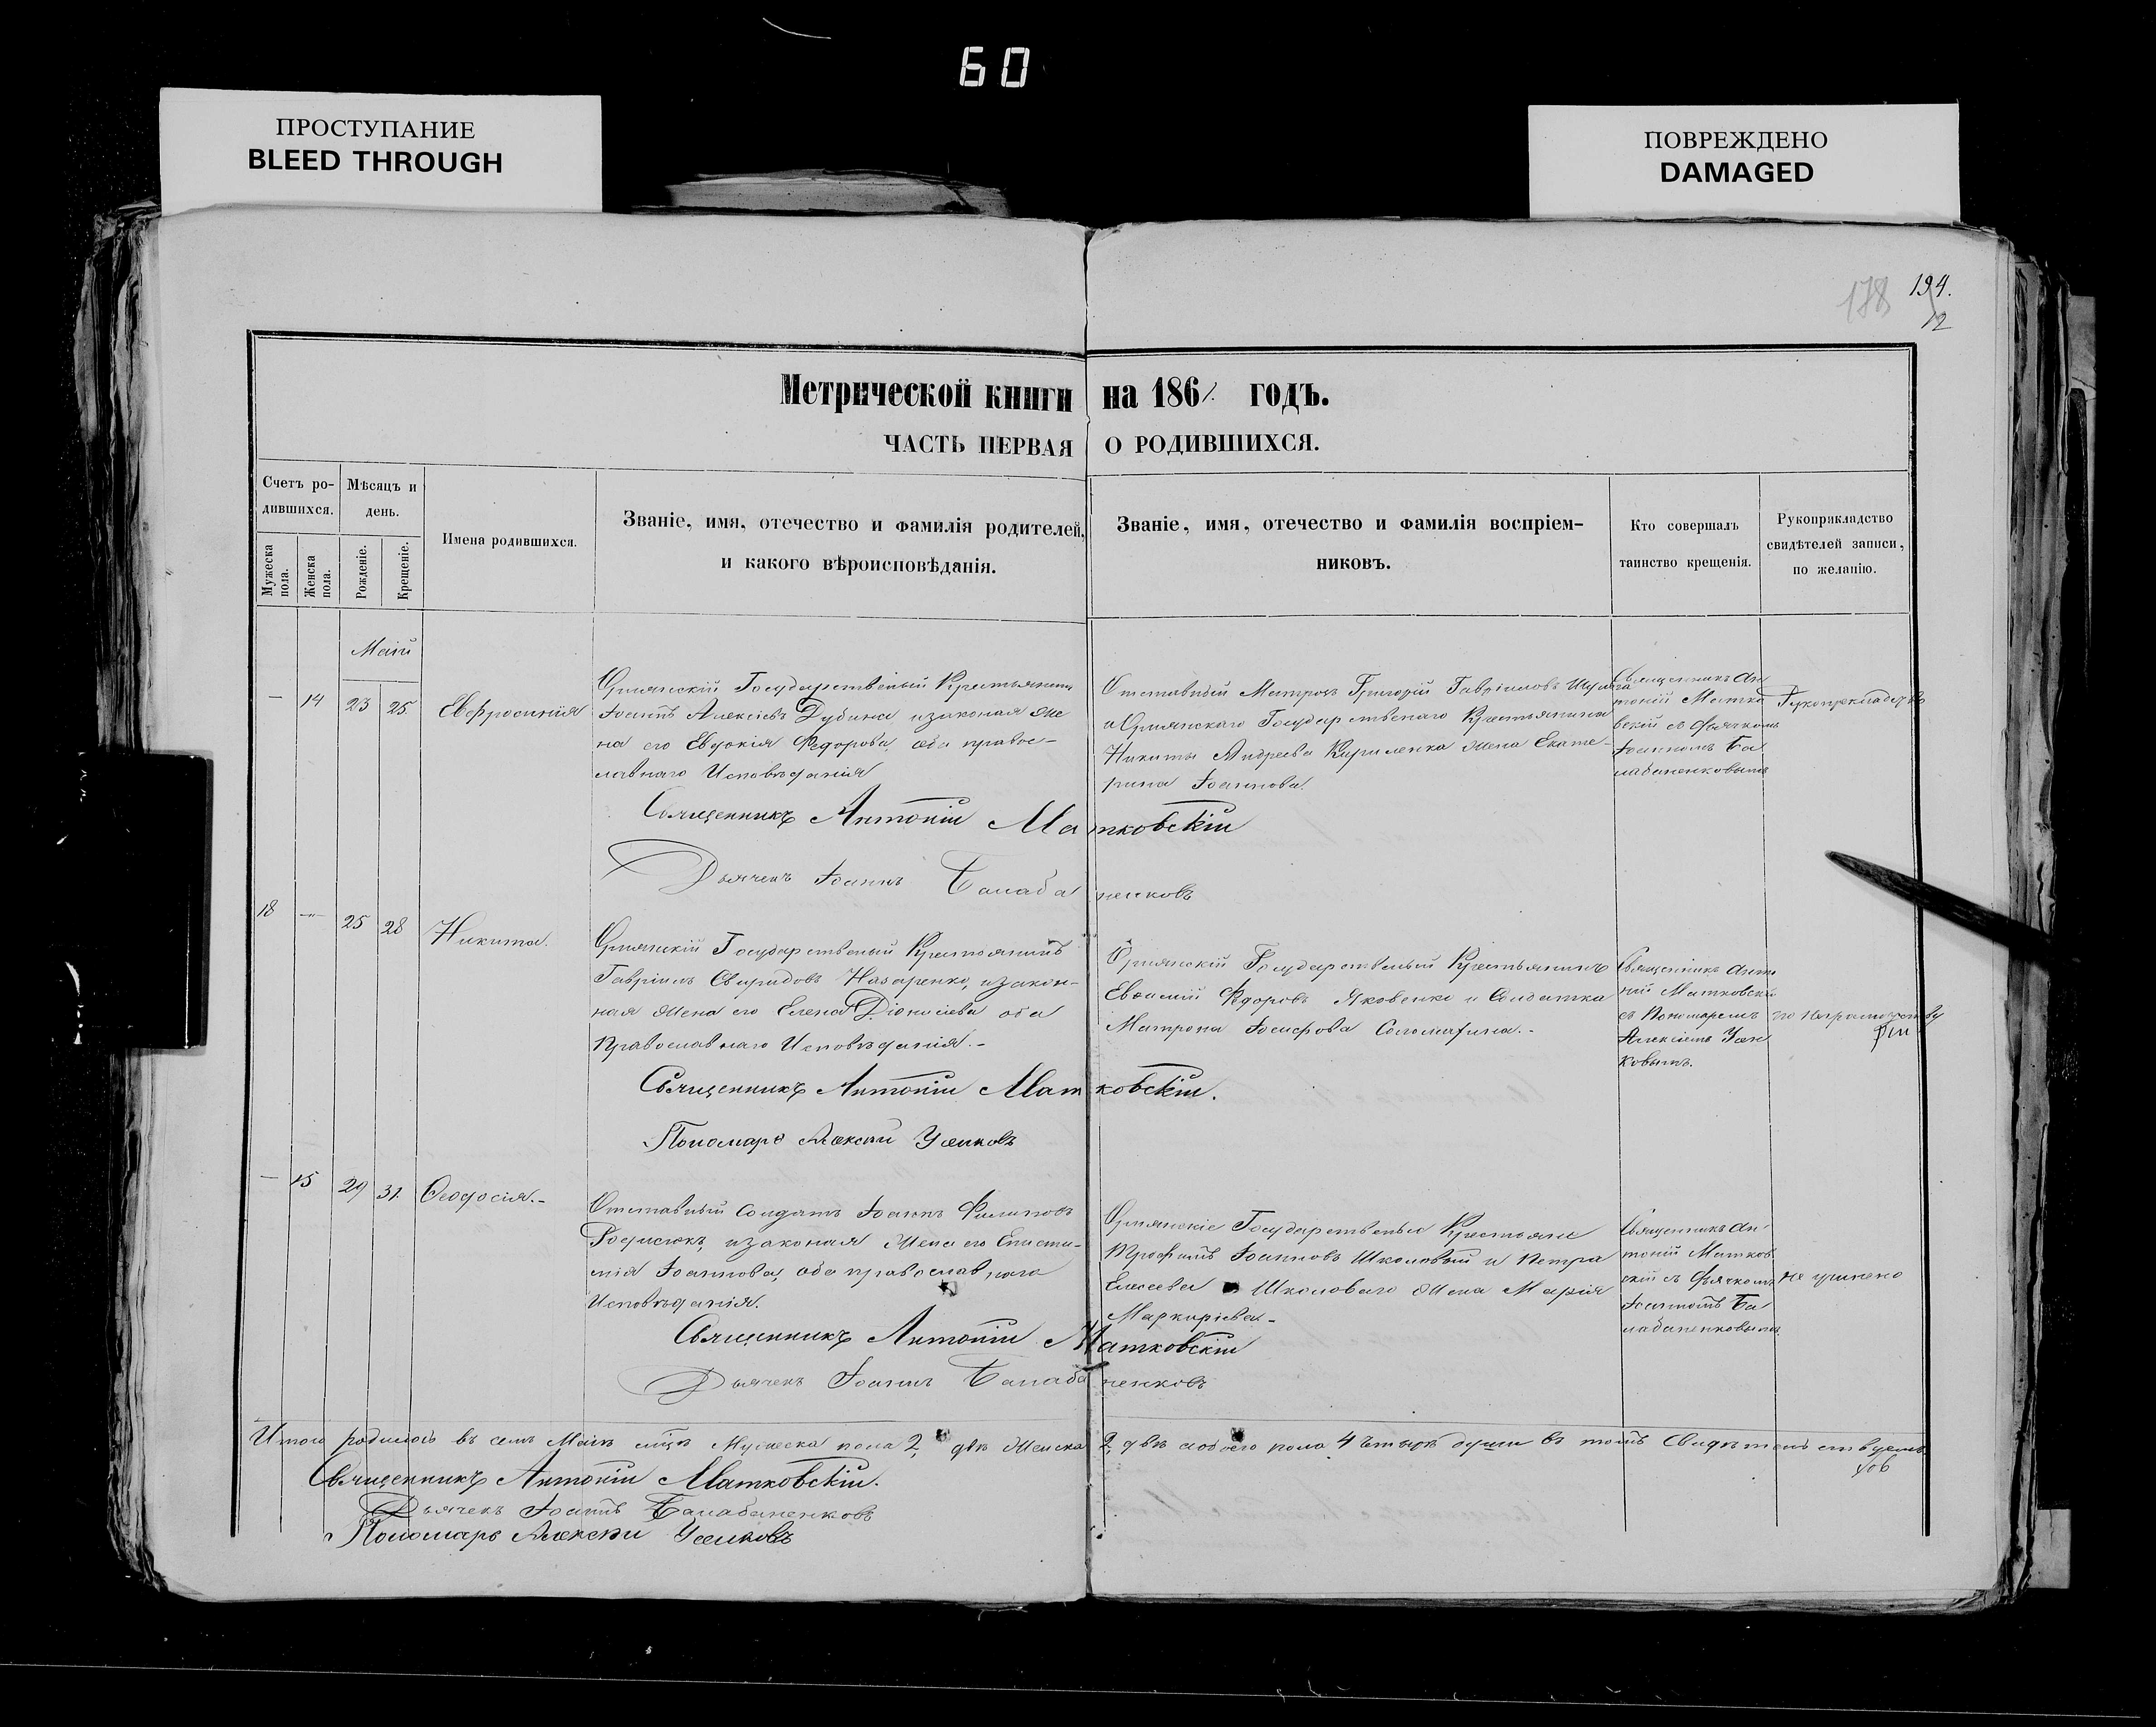 60
ПРОСТУПАНИЕ
BLEED THROUGH
ПОВРЕЖДЕНО
DAMAGED
178
194.
12
Метрической книги на 1861. годъ.
ЧАСТЬ ПЕРВАЯ О РОДИВШИХСЯ.
Счетъ ро-
дившихся.
Мужеска пола.
Женска пола.
Мѣсяцъ и
день.
Рожденіе.
Крещеніе.
Имена родившихся.
Званіе, имя, отечество и фамилія родителей,
и какого вѣроисповѣданія.
Званіе, имя, отечество и фамилія воспріем-
никовъ.
Кто совершалъ
таинство крещенія.
Рукоприкладство
свидѣтелей записи,
по желанію.
Маій
— 14 23 25 Евфросинія
Государственый Крестьянинъ
Іоаннъ Алексіевъ Дубина изаконая же
на его Евдокія Федорова, оба правос-
лавнаго Исповѣданія
Отставный Матрозъ Григорій Гавріиловъ
Государственаго Крестьянина
Никиты Андреева Кириленка жена Екате-
рина Іоаннова.
Священникъ Ан
тоній Матко
вскій съ Дьячкомъ
Іоанномъ Ба
лабаненковымъ
Священникъ Антоній Матковскій
Дьячекъ Іоаннъ Балабаненковъ
18 — 25 28 Никита.
Государственый Крестьянинъ
Гавріилъ Свиридовъ Назаренко, изакон-
ная жена его Елена Діонисіева оба
Православнаго Исповѣданія.-
Государственый Крестьянинъ
Евѳимій Федоровъ Яковенко и Солдатка
Матрона Іосифова
Священникъ Анто
ній Матковскій
съ Пономаремъ
Алексіемъ Усен
ковымъ.
Священникъ Антоній Матковскій.
Пономарь Алексѣй Усенковъ
— 15 29 31. Ѳеодосія.-
Отставный Солдатъ Іоаннъ Филиповъ
изаконая жена его Еписти-
мія Іоаннова, оба православнаго
Исповѣданія.
Государственые Крестьяне
Трофимъ Іоанновъ Школовый и Петра
Елисеева Школоваго жена Марія
Меркуріева-
Священникъ Ан-
тоній Матков
скій съ Дьячкомъ
Іоанномъ Ба
лабаненковымъ
Священникъ Антоній Матковскій
Дьячекъ Іоаннъ Балабаненковъ
Итого родилось въ семъ Маіѣ мцѣ Мужеска пола 2, два женска 2, двѣ а обоего пола 4 четыре души въ томъ свидѣтельствуемъ
Священникъ Антоній Матковскій.
Дьячекъ Іоаннъ Балабаненковъ
Пономарь Алексѣй Усенковъ